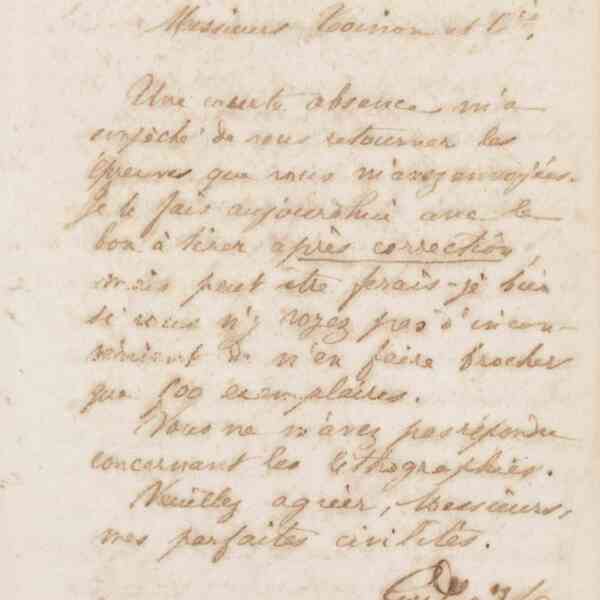 Messieurs Toinon et Cie,
Une courte absence m'a
empêché de vous retourner les
épreuves que vous m'avez envoyées.
Je le fais aujourdhui avec le
bon à tirer après correction,
mais peut être ferais-je bien
si vous n'y voyez pas d'incon-
vénient de n'en faire brocher
que 500 exemplaires.
Vous ne m'avez pas répondu
concernant les lithographies.
Veuillez agréer, Messieurs,
mes parfaites civilités.